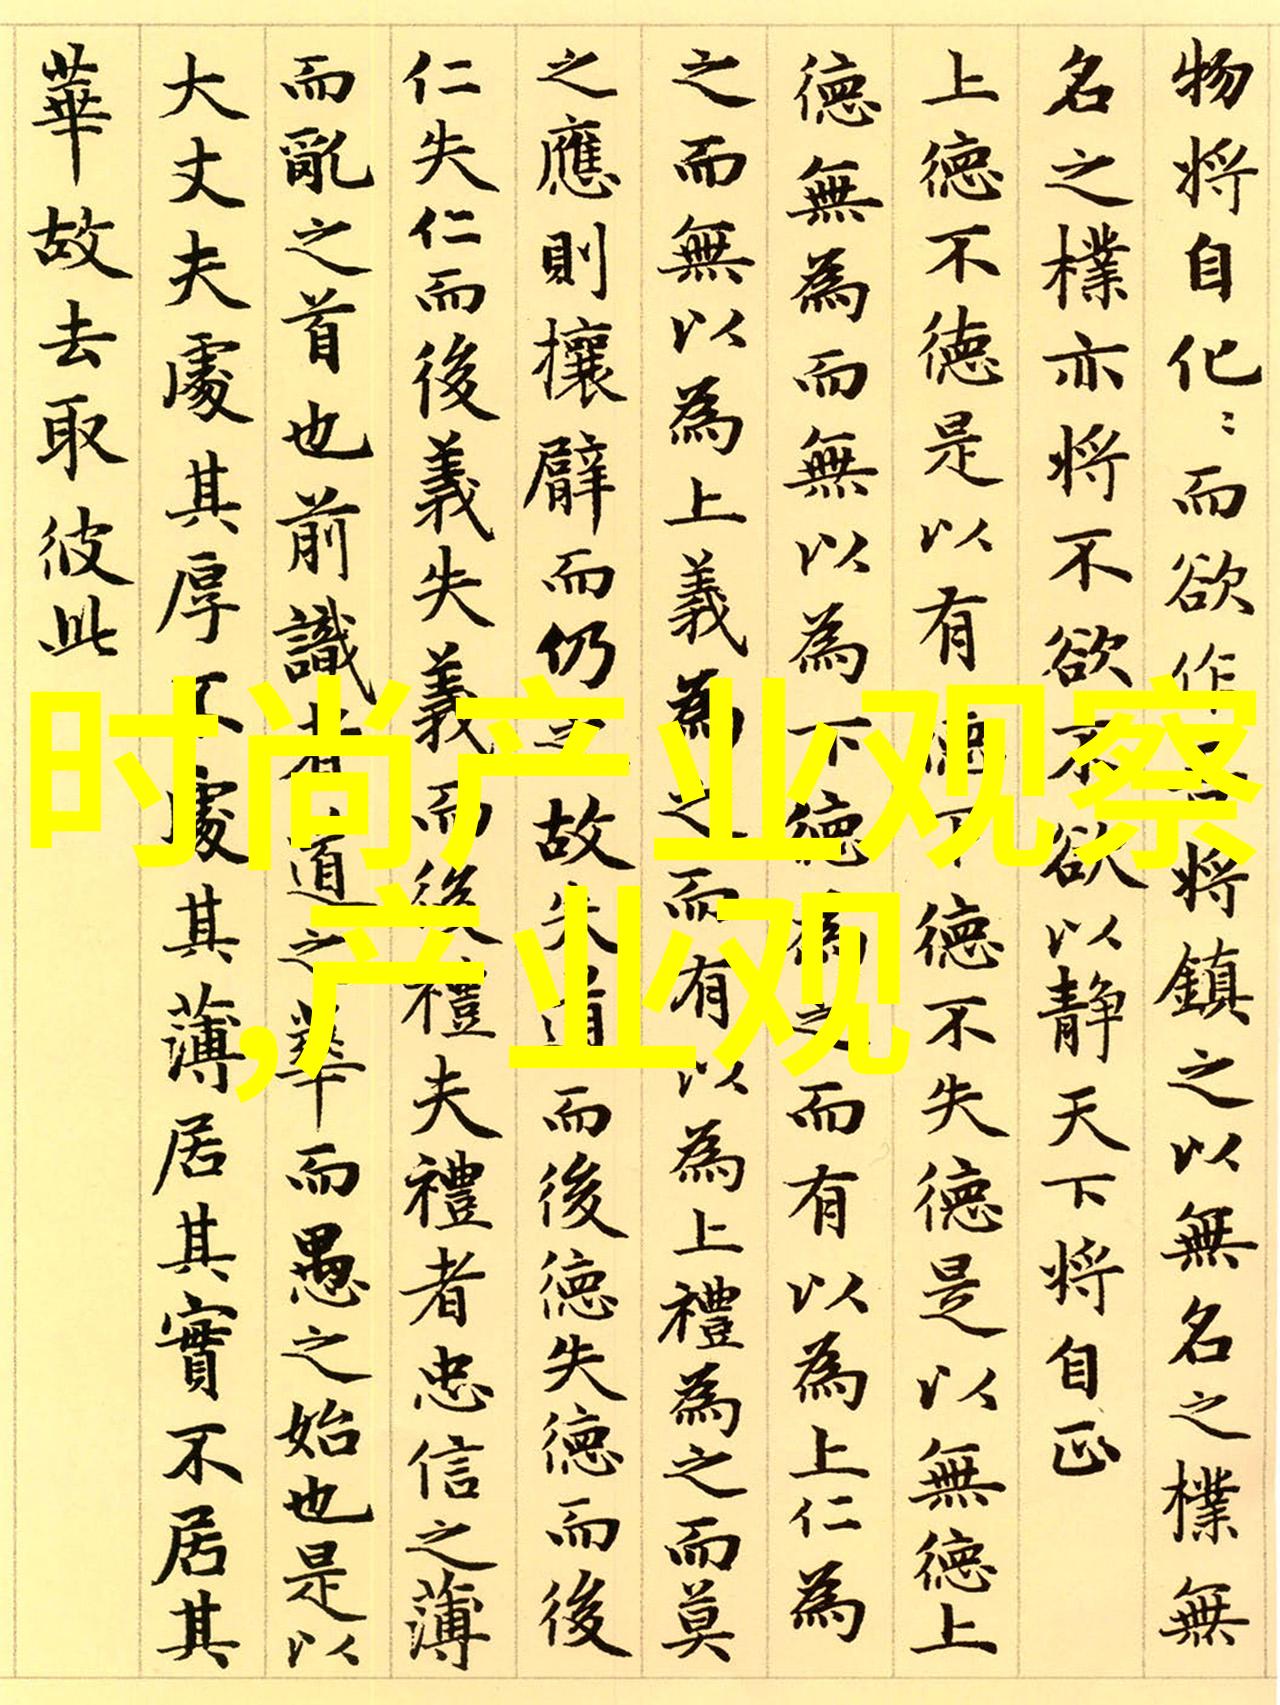 物将自化〻而欲作将鎮之以無名之樸無
名之樸亦将不欲不欲以静天下将自正
上德不德是以有德下德不失德是以無德上
德無為而無以為下德為之而有以為上仁為
之而無以為上義為之而有以為上禮為之而莫
之應則攘臂而仍之故失道而後德失德而後
仁失仁而後義失義而後禮夫禮者忠信之薄
而亂之首也前識者道之華而愚之始也是以
大丈夫處其厚不處其薄居其實不居其
華故去取彼此
时尚产业观察
,产业观